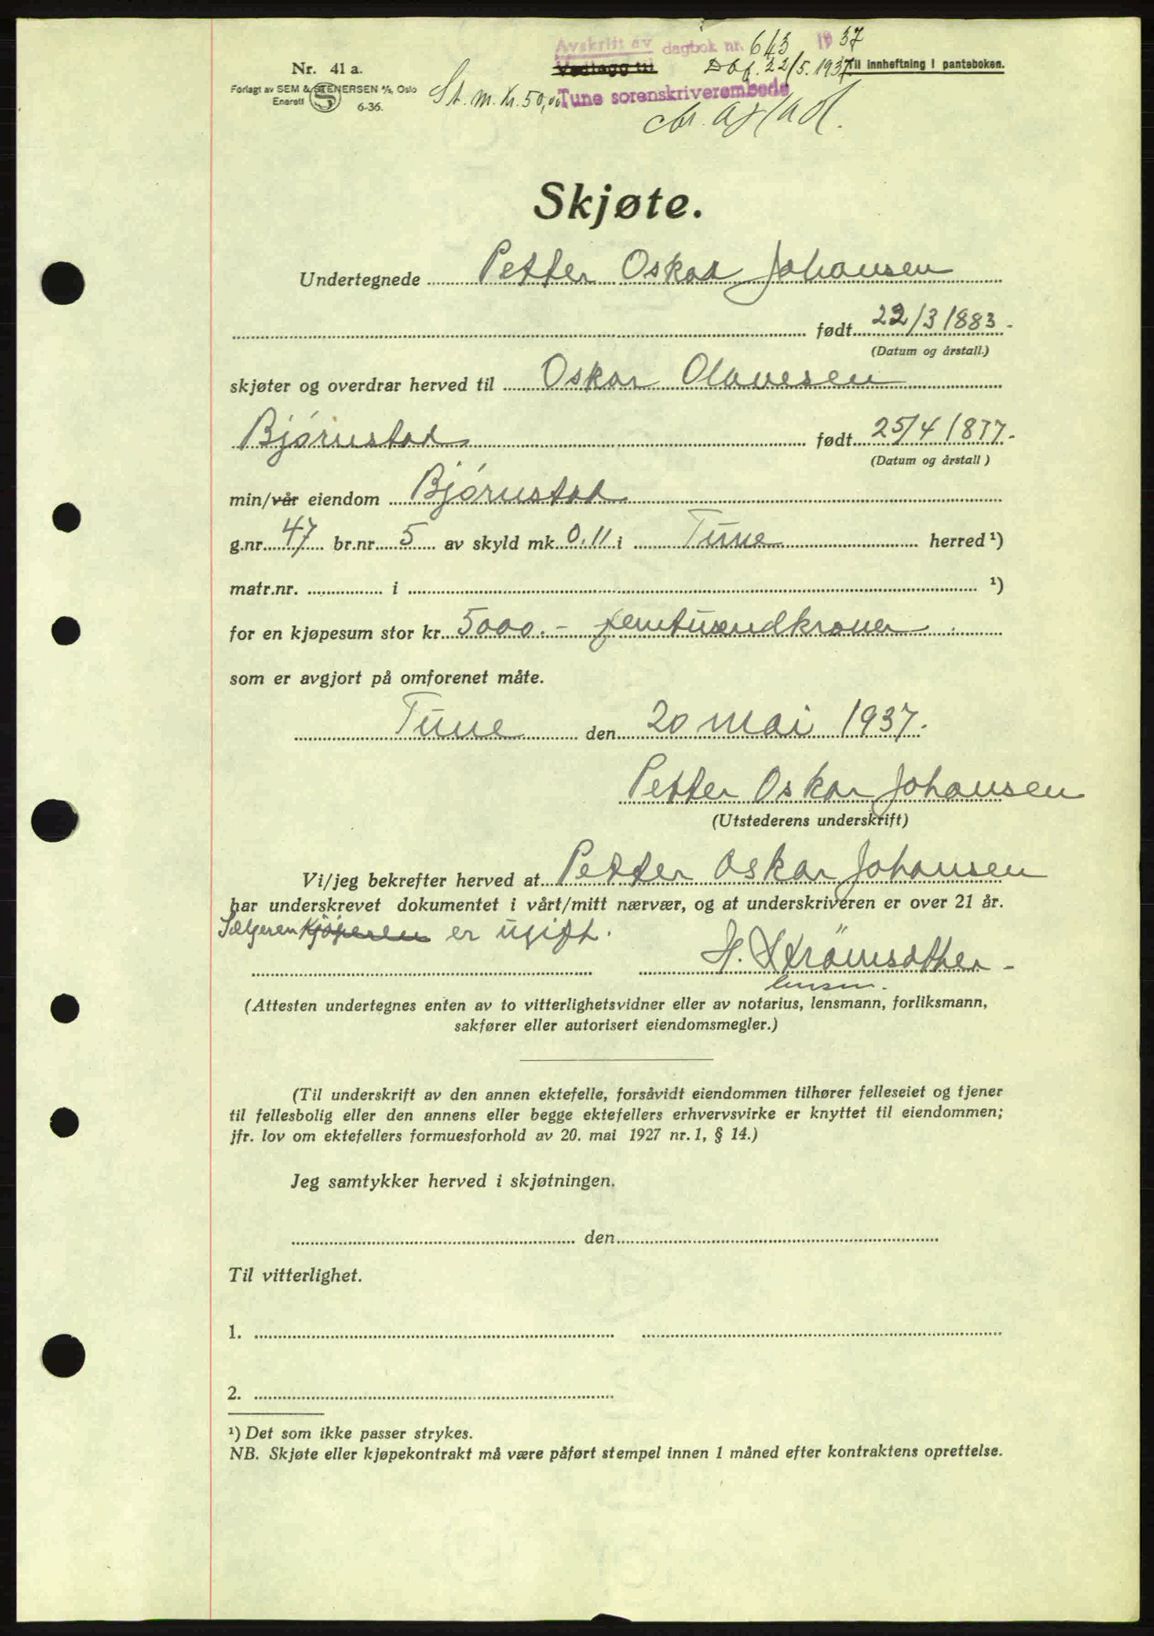 Avskrift av dagbok nr. 643 1937
Vedlegg til Dbf. 22/5. 1937 Til innheftning i panteboken.
Nr. 41 a.
Forlagt av SEM & STENERSEN A/S, Oslo
Enerett 6-36.
St. m. Kr. 50,00 Tune sorenskriverembede
Skjøte.
Undertegnede Petter Oskar Johansen
født 22/3 1883.
(Datum og årstall.)
skjøter og overdrar herved til Oskar Olavesen
Bjørnstad født 25/4 1877.
(Datum og årstall)
min/vår eiendom Bjørnstad
g.nr. 47 br.nr. 5 av skyld mk. 0.11 i Tune herred ¹)
matr.nr. i ¹)
for en kjøpesum stor kr. 5000.- femtusendkroner
som er avgjort på omforenet måte.
Tune den 20 mai 1937.
Petter Oskar Johansen
(Utstederens underskrift)
Vi/jeg bekrefter herved at Petter Oskar Johansen
har underskrevet dokumentet i vårt/mitt nærvær, og at underskriveren er over 21 år.
Selgeren Kjøperen er ugift.
H. Strömsæther
lensm.
(Attesten undertegnes enten av to vitterlighetsvidner eller av notarius, lensmann, forliksmann,
sakfører eller autorisert eiendomsmegler.)
(Til underskrift av den annen ektefelle, forsåvidt eiendommen tilhører felleseiet og tjener
til fellesbolig eller den annens eller begge ektefellers erhvervsvirke er knyttet til eiendommen;
jfr. lov om ektefellers formuesforhold av 20. mai 1927 nr. 1, § 14.)
Jeg samtykker herved i skjøtningen.
den
Til vitterlighet.
1.
2.
¹) Det som ikke passer strykes.
NB. Skjøte eller kjøpekontrakt må være påført stempel innen 1 måned efter kontraktens oprettelse.